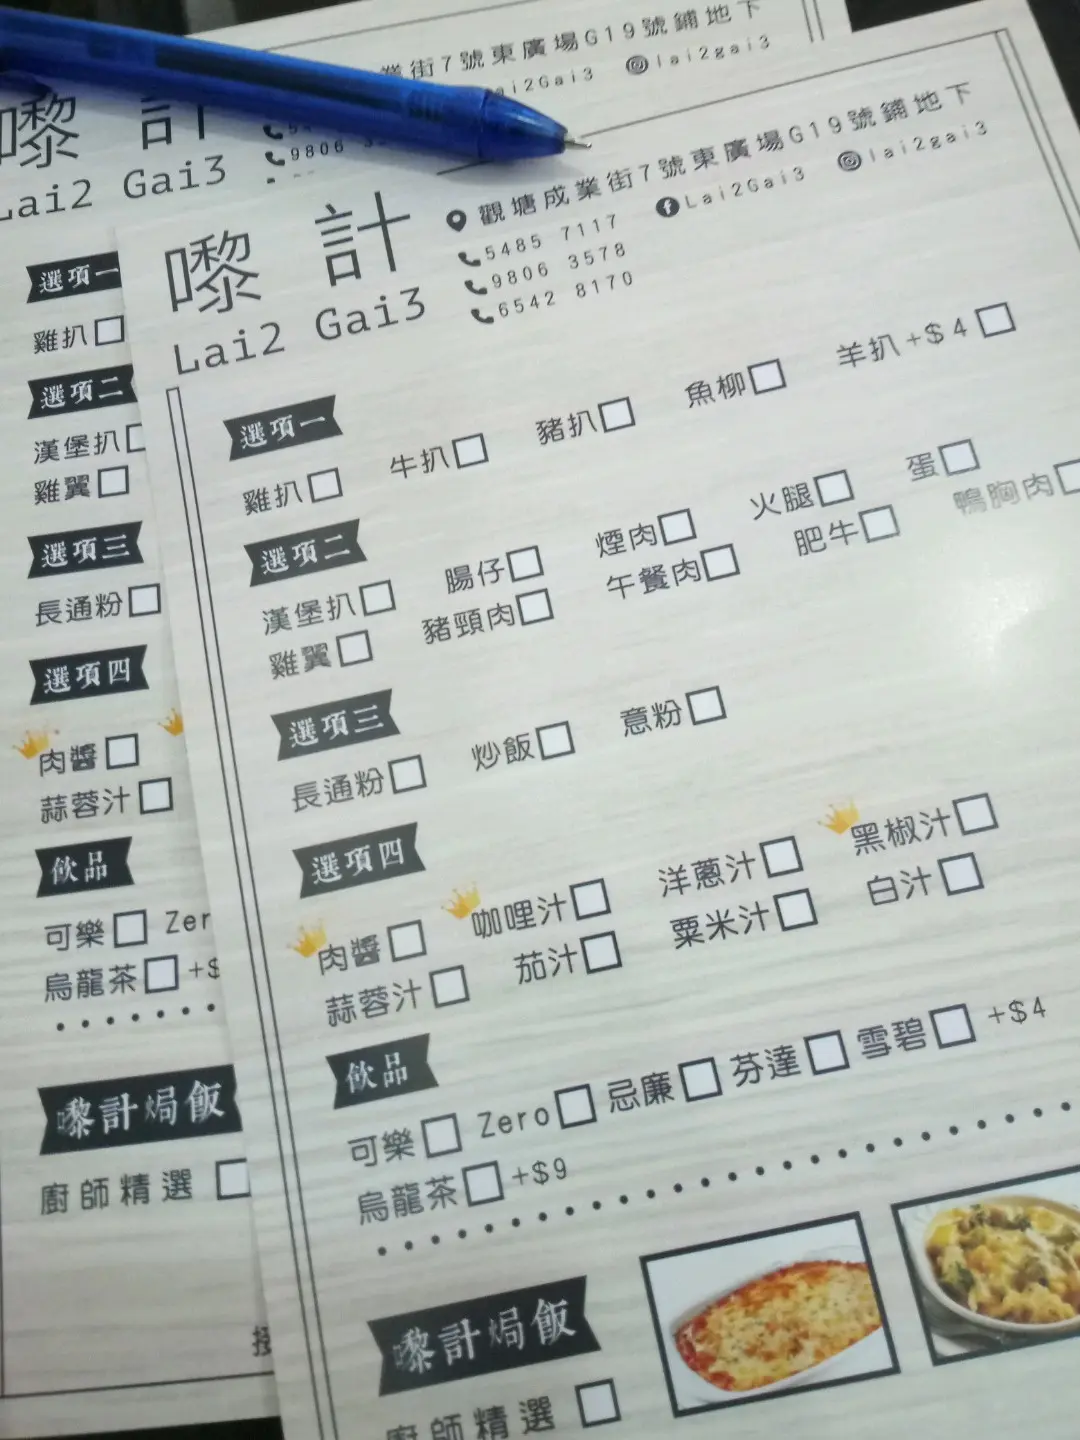 業街7號東廣場G19號鋪地下
ai2Gai3
lai2gai3
嚟計
Lai2 Gai3
9806
選項一
雞扒
選項二
漢堡扒
雞翼
選項三
長通粉
選項四
肉醬
蒜蓉汁
飲品
可樂 Zer
烏龍茶 +$
嚟計焗飯
廚師精選
嚟計
Lai2 Gai3
觀塘成業街7號東廣場G19號鋪地下
5485 7117
9806 3578
6542 8170
Lai2Gai3
lai2gai3
選項一
雞扒 牛扒 豬扒 魚柳 羊扒+$4
選項二
漢堡扒 腸仔 煙肉 火腿 蛋
雞翼 豬頸肉 午餐肉 肥牛 鴨胸肉
選項三
長通粉 炒飯 意粉
選項四
肉醬 咖哩汁 洋蔥汁 黑椒汁
蒜蓉汁 茄汁 粟米汁 白汁
飲品
可樂 Zero 忌廉 芬達 雪碧 +$4
烏龍茶 +$9
嚟計焗飯
廚師精選